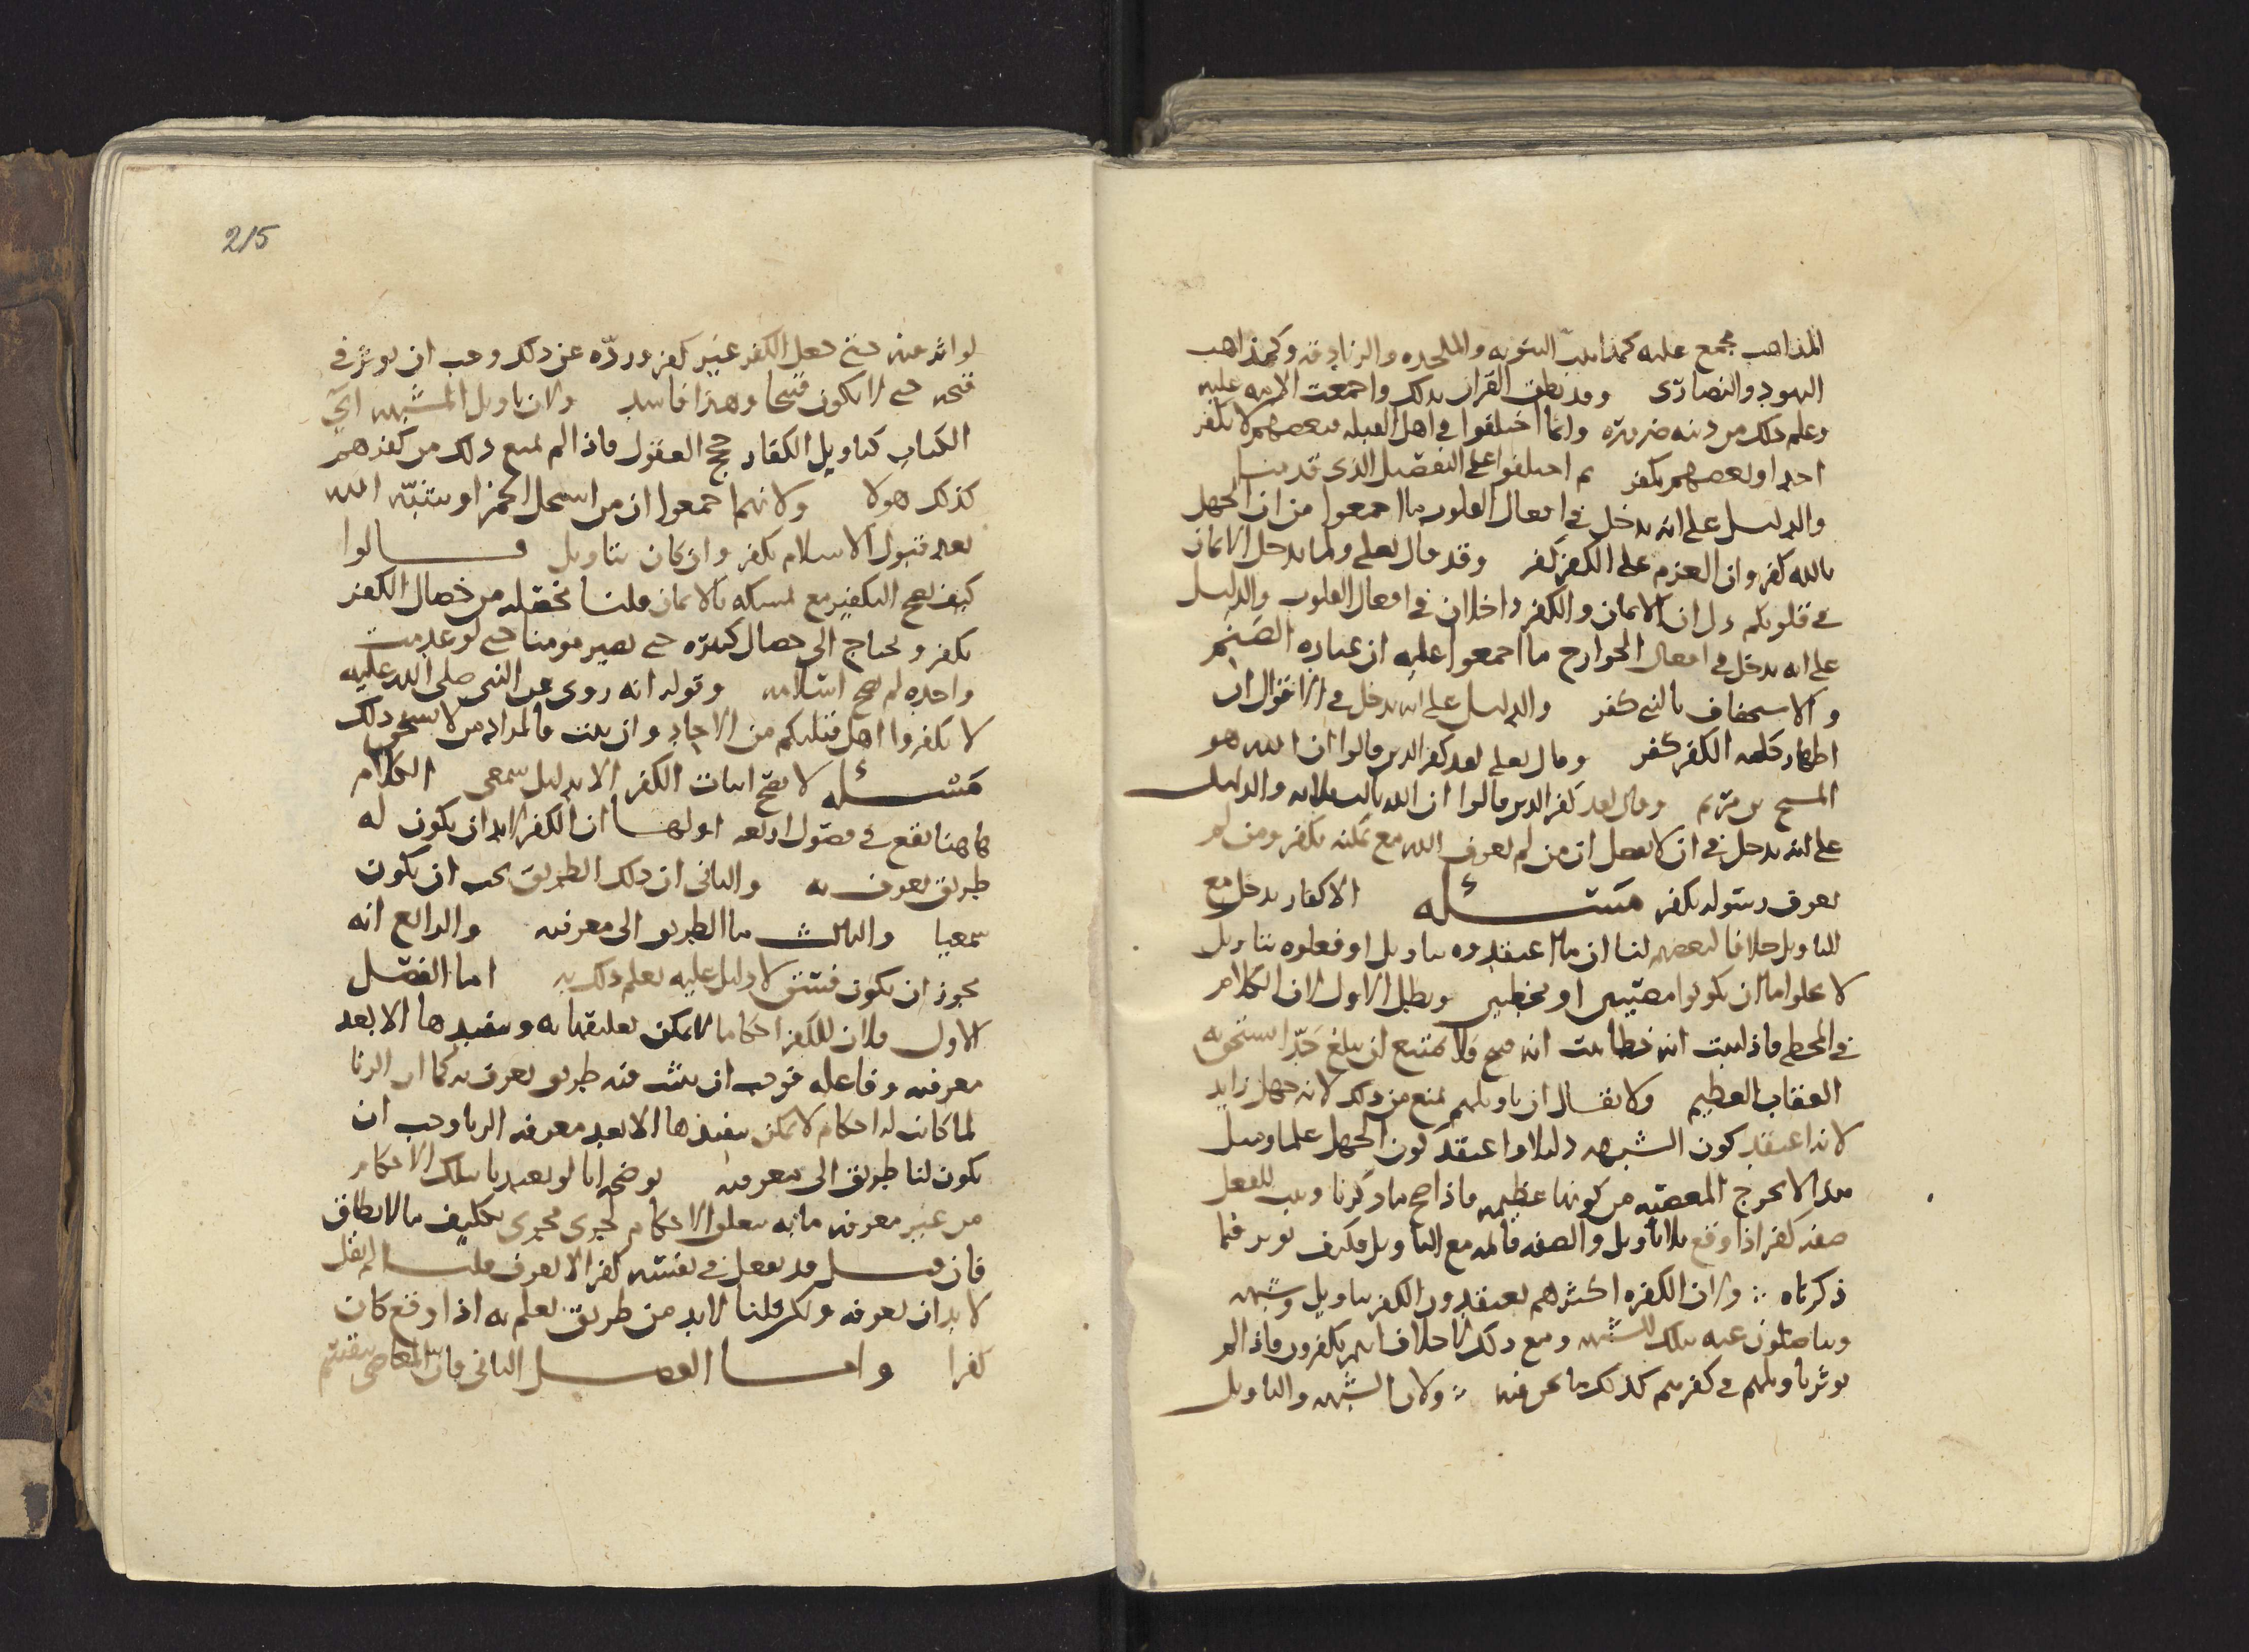 المذاهب مجمع عليه كمذاهب الثنويه والملحده والزنادقه وكمذاهب
اليهود والنصارى وقد نطق القران بذلك واجمعت الامه عليه
وعلم ذلك من دينه ضروره وانما اختلفوا في اهل القبله فبعضهم لا يكفر
احدا وبعضهم يكفر ثم اختلفوا على التفصيل الذى قدمنا
والدليل على انه يدخل في افعال القلوب ما اجمعوا من ان الجهل
بالله كفر وان العزم على الكفر كفر وقد قال تعلى ولما يدخل الايمان
في قلوبكم دل ان الايمان والكفر داخلان في افعال القلوب والدليل
على انه يدخل في افعال الجوارح ما اجمعوا عليه ان عباده الصنم
والاستخفاف بالنبي كفر والدليل على انه يدخل في الاقوال ان
اظهار كلمه الكفر كفر وقال تعلى لقد كفر الذين قالوا ان الله هو
المسيح بن مريم وقال لقد كفر الذين قالوا ان الله ثالث ثلاثه والدليل
على انه يدخل في ان لا يفعل ان من لم يعرف الله مع تمكنه يكفر ومن لم
يعرف رسوله يكفر مسئله الاكفار يدخل مع
التاويل خلافا لبعضهم لنا ان ما اعتقدوه بتاويل او فعلوه بتاويل
لا يخلو اما ان يكونوا مصيبين او مخطيين وبطل الاول لان الكلام
في المخطي فاذا ثبت انه خطا ثبت انه قبيح ولا يمتنع ان يبلغ حدا يستحق به
العقاب العظيم ولا يقال ان تاويلهم يمنع من ذلك لانه جهل زايد
لانه اعتقد كون الشبهه دليلا واعتقد كون الجهل علما ومثل
هذا لا يخرج المعصيه من كونها عظيمه فاذا صح ما ذكرنا وثبت للفعل
صفه كفر اذا وقع بلا تاويل والصفه قايمه مع التاويل فكيف يوثر فيما
ذكرناه ولان الكفره اكثرهم يعتقدون الكفر بتاويل وشبهه
ويناضلون عنه بتلك الشبهه ومع ذلك لا خلاف انهم يكفرون فاذا لم
يوثر تاويلهم في كفرهم كذلك ما نحن فيه ولان الشبهه والتاويل
215
لو اثر فيه حتى جعل الكفر غير كفر وردّه عن ذلك وجب ان يوثر في
قبحه حتى لا يكون قبيحا وهذا فاسد ولان تاويل المشبهه اي
الكتاب كتاويل الكفار حجج العقول فاذا لم يمنع ذلك من كفرهم
كذلك هولا ولانهم اجمعوا ان من استحل الخمر او شبّه الله
بعد قبول الاسلام يكفر وان كان بتاويل قالوا
كيف يصح التكفير مع تمسكه بالايمان قلنا بخصله من خصال الكفر
يكفر ويحتاج الى خصال كثيره حتى يصير مومنا حتى لو عدمت
واحده لم يصح اسلامه وقوله انه روى عن النبى صلى الله عليه
لا تكفروا اهل قبلتكم من الاحاد وان ثبت فالمراد من لا يستحق ذلك
مسئله لا يصح اثبات الكفر الا بدليل سمعى الكلام
هاهنا يقع في فصول اربعه اولها ان الكفر لابد ان يكون له
طريق يعرف به والثانى ان ذلك الطريق يجب ان يكون
سمعيا والثالث ما الطريق الى معرفته والرابع انه
يجوز ان يكون فسق لا دليل عليه يعلم ذلك به اما الفصل
الاول فلان للكفر احكاما لا يمكن تعليقها به وتنفيذها الا بعد
معرفته وفاعله فوجب ان يثبت فيه طريق يعرف به كما ان الزنا
لما كانت له احكام لا يمكن تنفيذها الا بعد معرفه الزنا وجب ان
يكون لنا طريق الى معرفته يوضحه انا لو تعبدنا بتلك الاحكام
من غير معرفه ما به تتعلق الاحكام لجرى مجرى تكليف ما لا يطاق
فان قيل قد يفعل في نفسه كفرا لا يعرف قلنا لم نقل
لا بد ان نعرفه ولكن قلنا لابد من طريق نعلم به اذا وقع كان
كفرا واما الفصل الثانى فان المعاصى ينقسم